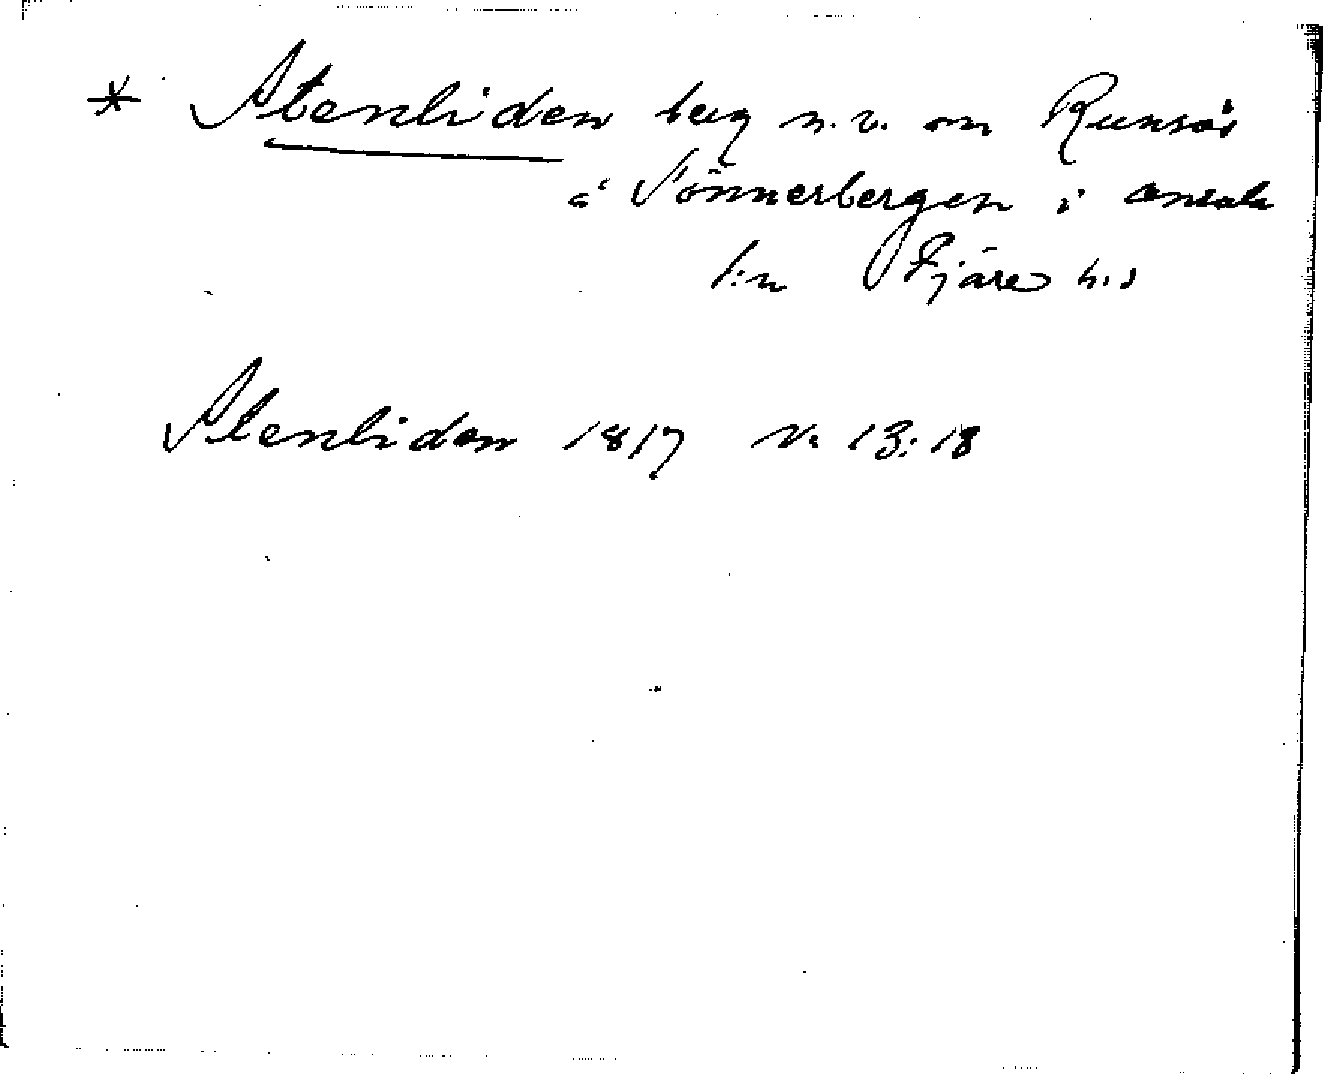 * Stenliden berg n.v. om Runsås
å Sönnerbergen i Onsala
s:n Fjäre h.d
Stenliden 1817 N: 13:18